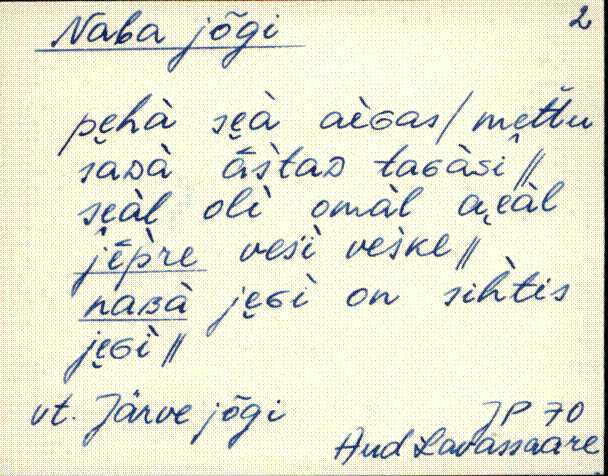 Naba jõgi
2
pe̬hà se̬à aèɢas / me̬t̆t̆u
saᴅà ā́s̀taᴅ taɢàsi //
se̬àl olì omàl a̬e̬àl
jḗp̀re vesì ves̀ke //
naʙà je̬ɢì on sih̀tis
je̬ɢì //
vt. Järve jõgi
JP 70
Aud Lavassaare